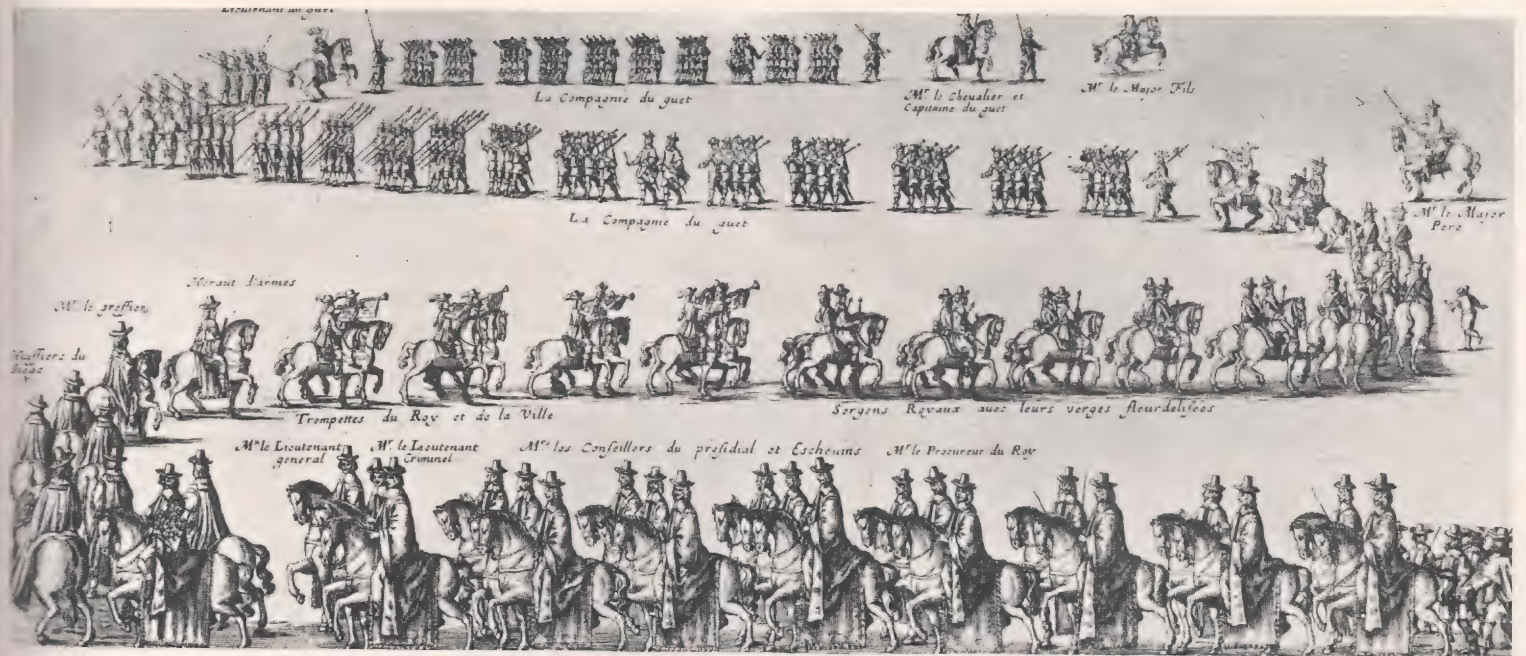 Lieutenant du guet
La Compagnie du guet
Mr. le Chevalier et
Capitaine du guet
Mr. le Major Fils
La Compagnie du guet
Mr. le Major
Pere
Heraut d'armes
Mr. le greffier
Huissiers du
Trompettes du Roy et de la Ville
Sergens Royaux avec leurs verges fleurdelisees
Mr. le Lieutenant
general
Mr. le Lieutenant
Criminel
Mrs. les Conseillers du presidial et Eschevins
Mr. le Procureur du Roy